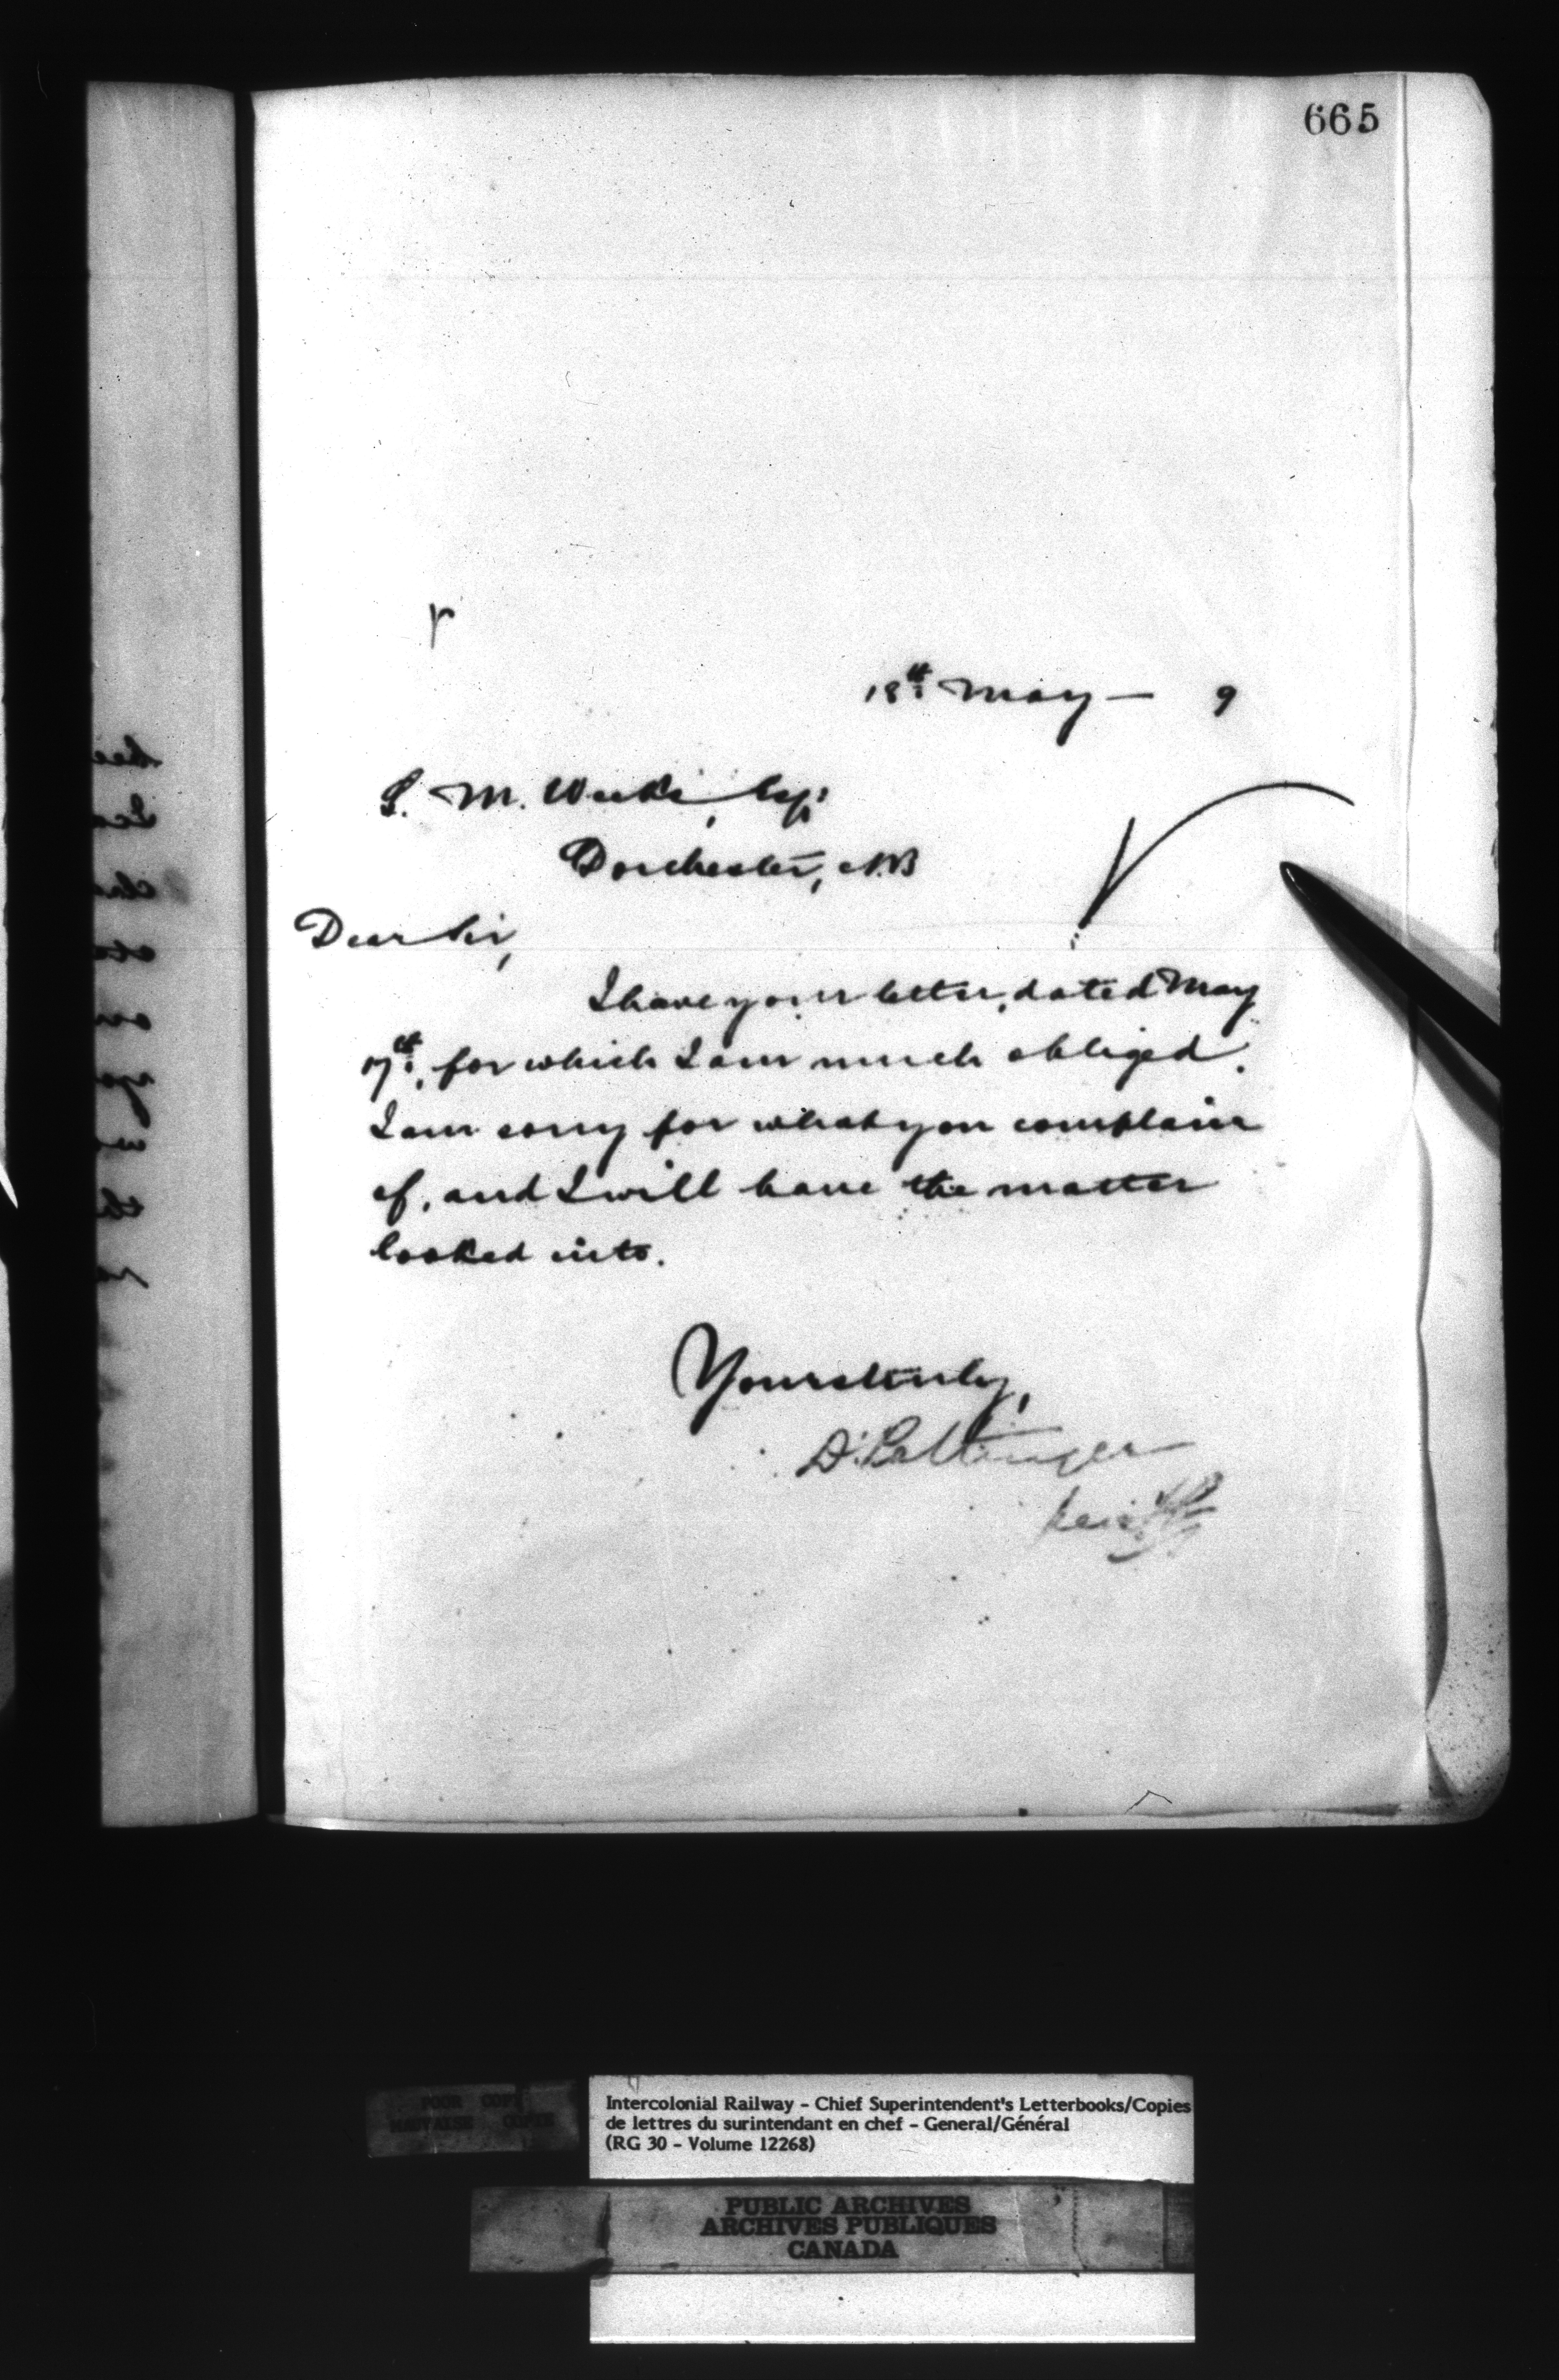 665
18th May — 9
S. M. Weeks, Esq:
Dorchester, N.B
Dear Sir,
I have your letter, dated May
17th, for which I am much obliged.
I am sorry for what you complain
of, and I will have the matter
looked into.
Yours truly,
D. Pottinger
POOR COPY
MAUVAISE COPIE
Intercolonial Railway - Chief Superintendent's Letterbooks/Copies
de lettres du surintendant en chef - General/Général
(RG 30 - Volume 12268)
PUBLIC ARCHIVES
ARCHIVES PUBLIQUES
CANADA